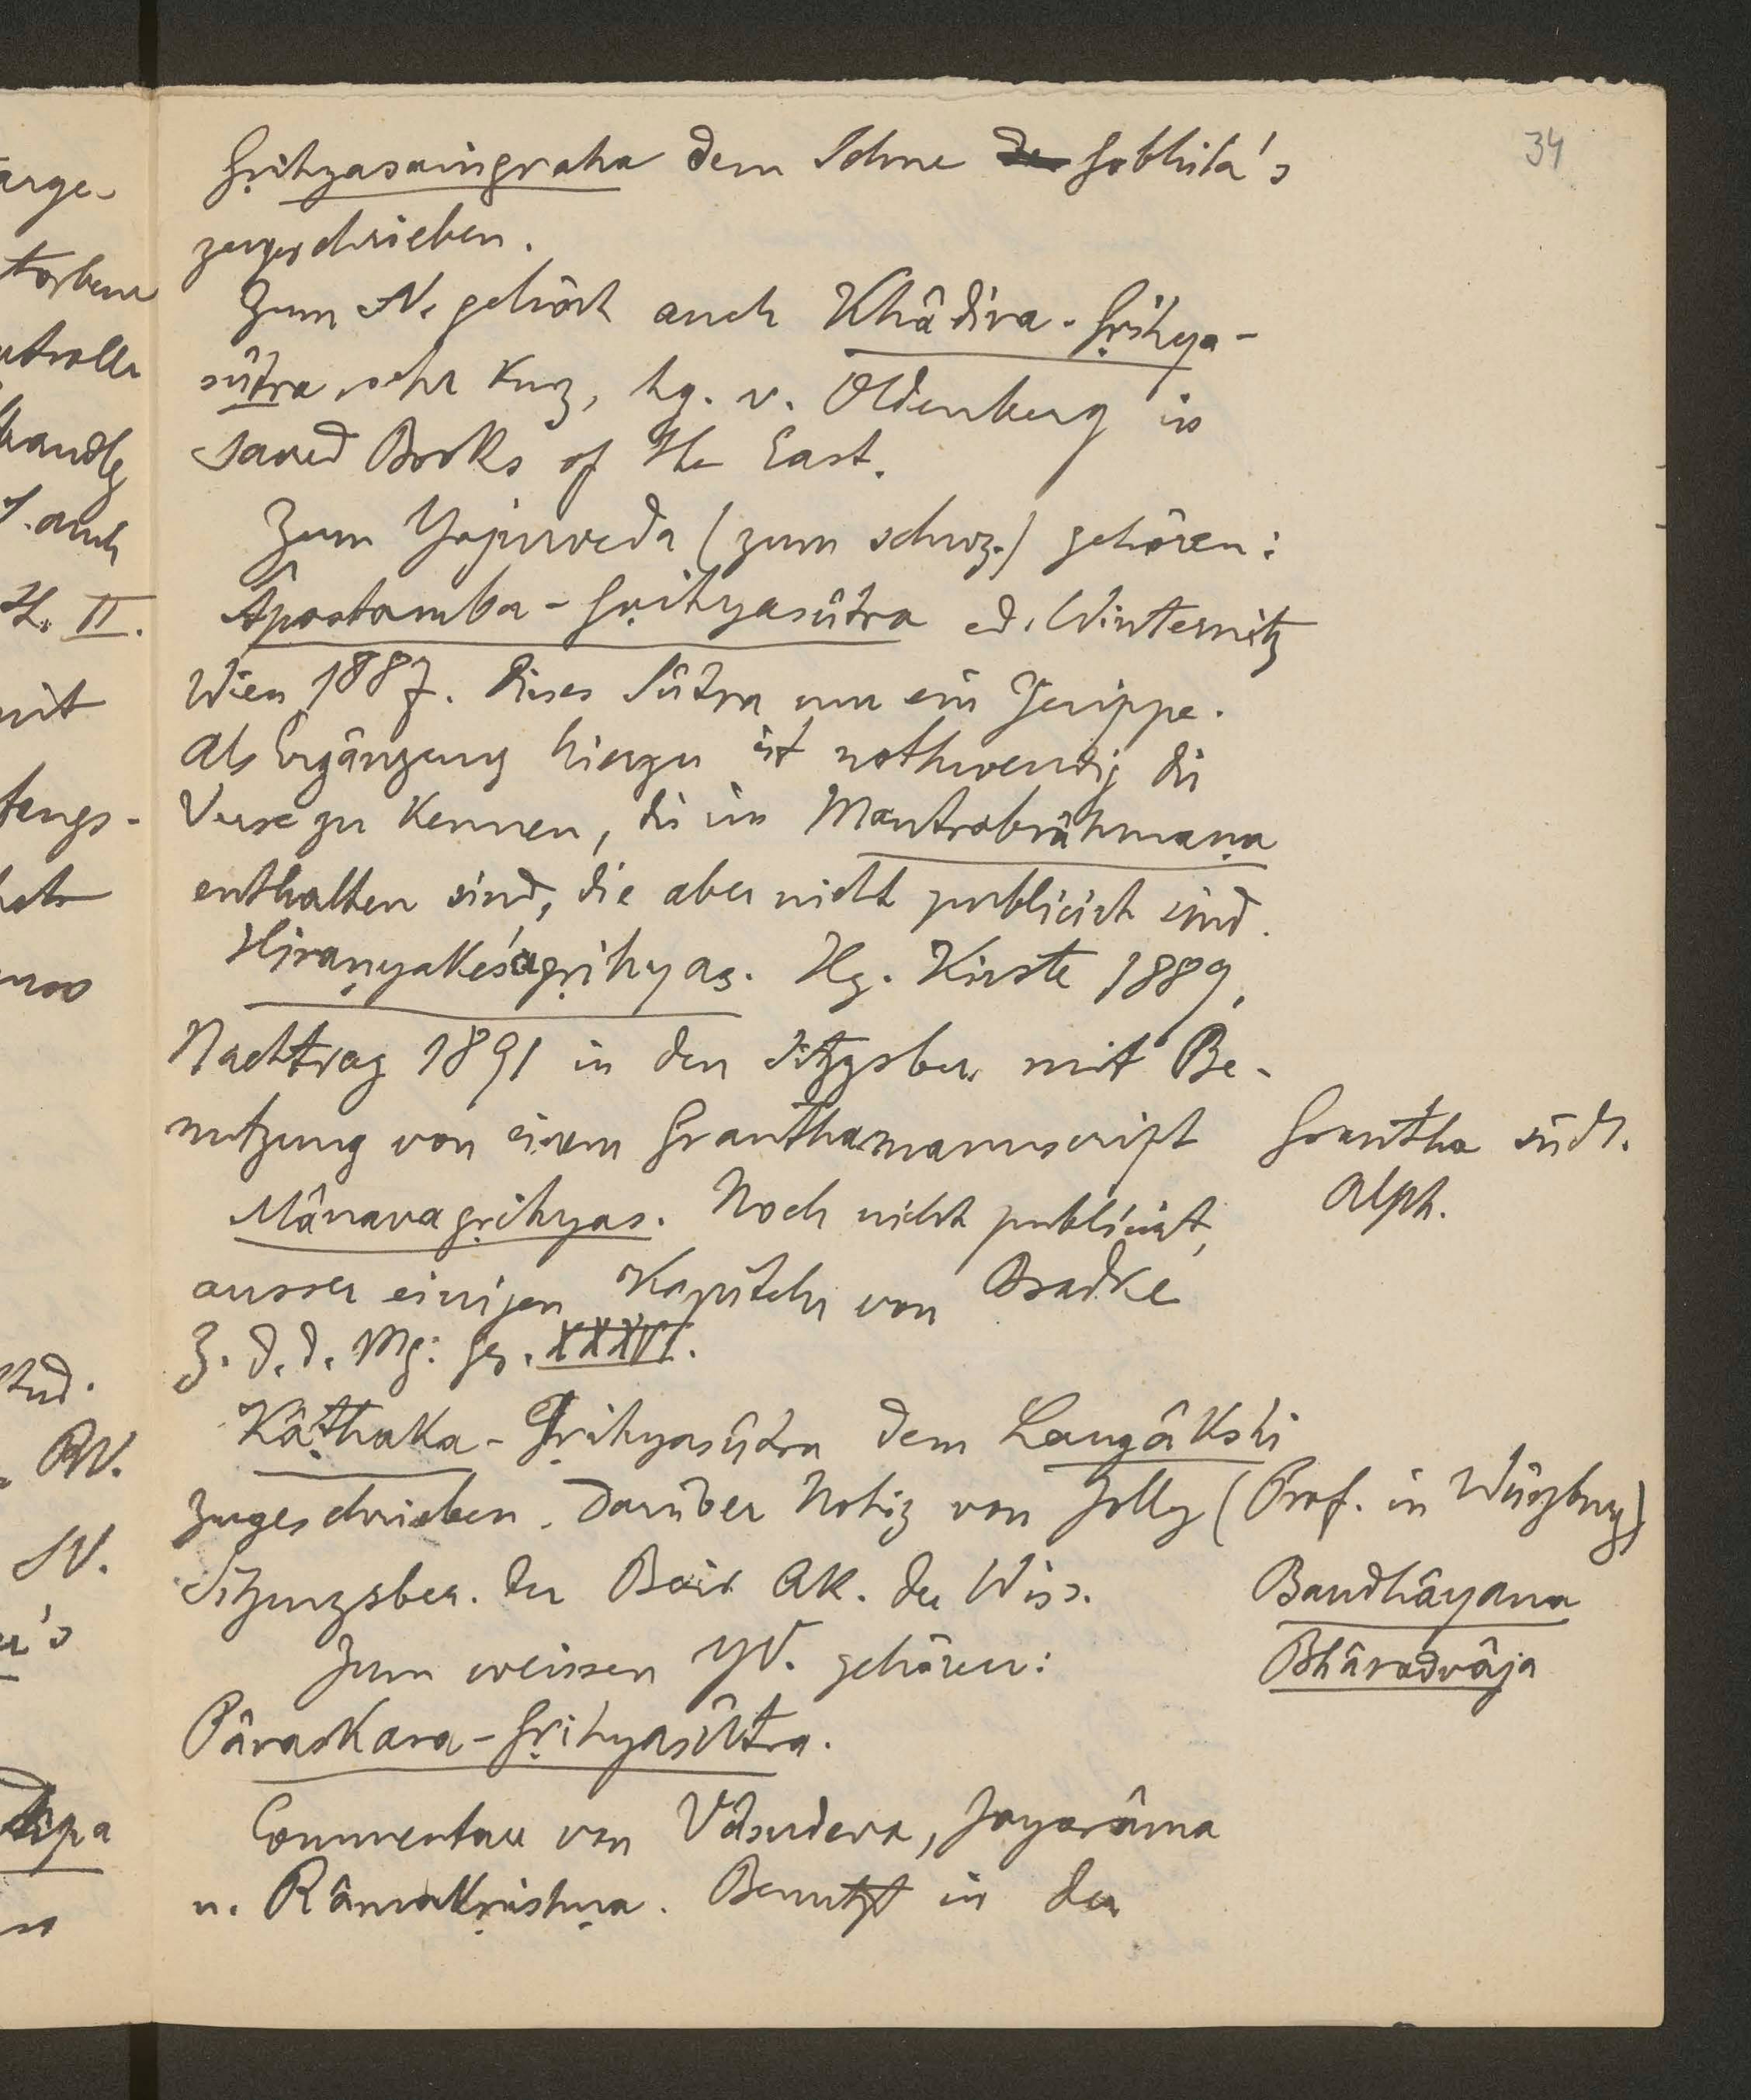 34
Gṛihyasaṃgraha dem Sohne de Gobhila's
zugeschrieben.
Zum SV. gehört auch Khâdira-Gṛihya-
sûtra sehr kurz, hg. v. Oldenberg in
Sacred Books of the East.
Zum Yajurveda (zum schwz.) gehören:
Âpastamba-Gṛihyasûtra ed. Winternitz
Wien 1887. Dieses Sûtra nur ein Gerippe.
Als Ergänzung hierzu ist nothwendig die
Verse zu kennen, die im Mantrabrâhmaṇa
enthalten sind, die aber nicht publicirt sind.
Hiraṇyakeśagṛihyas. Hg. Kirste 1889,
Nachtrag 1891 in den Sitzgsber. mit Be-
nutzung von einem Granthamanuscript
Grantha südl.
Alph.
Mânavagṛihyas. Noch nicht publicirt,
ausser einigen Kapiteln von Bradke
Z. d. d. Mg. Ges. XXXVI.
Kâṭhaka-Gṛihyasûtra dem Laugâkshi
zugeschrieben. Darüber Notiz von Jolly (Prof. in Würzburg)
Sitzungsber. der Bair Ak. der Wiss.
Baudhâyana
Zum weissen YV. gehören:
Bhâradvâja
Pâraskara-Gṛihyasûtra.
Commentare von Vâsudeva, Jayarâma
u. Râmakṛishṇa. Benutzt in der